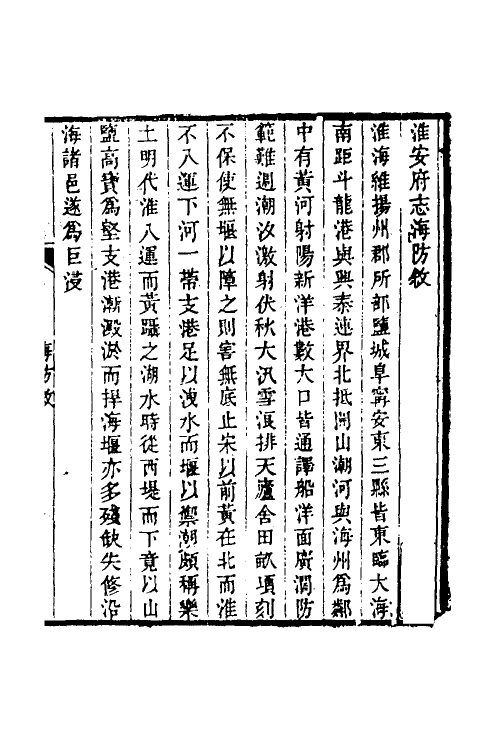 淮安府志海防敘
淮海維揚州郡所部鹽城阜寧安東三縣皆東臨大海
南距斗龍港與興泰連界北抵開山潮河與海州為鄰
中有黃河射陽新洋港數大口皆通譯船洋面廣濶防
範難週潮汐激射伏秋大汛雪浪排天廬舍田畝頃刻
不保使無堰以障之則害無底止宋以前黃在北而淮
不入運下河一帶支港足以洩水而堰以禦潮頗稱樂
土明代淮入運而黃躡之湖水時從西堤而下竟以山
鹽高寶為壑支港漸澱淤而捍海堰亦多殘缺失修沿
海諸邑遂為巨浸
海防敘